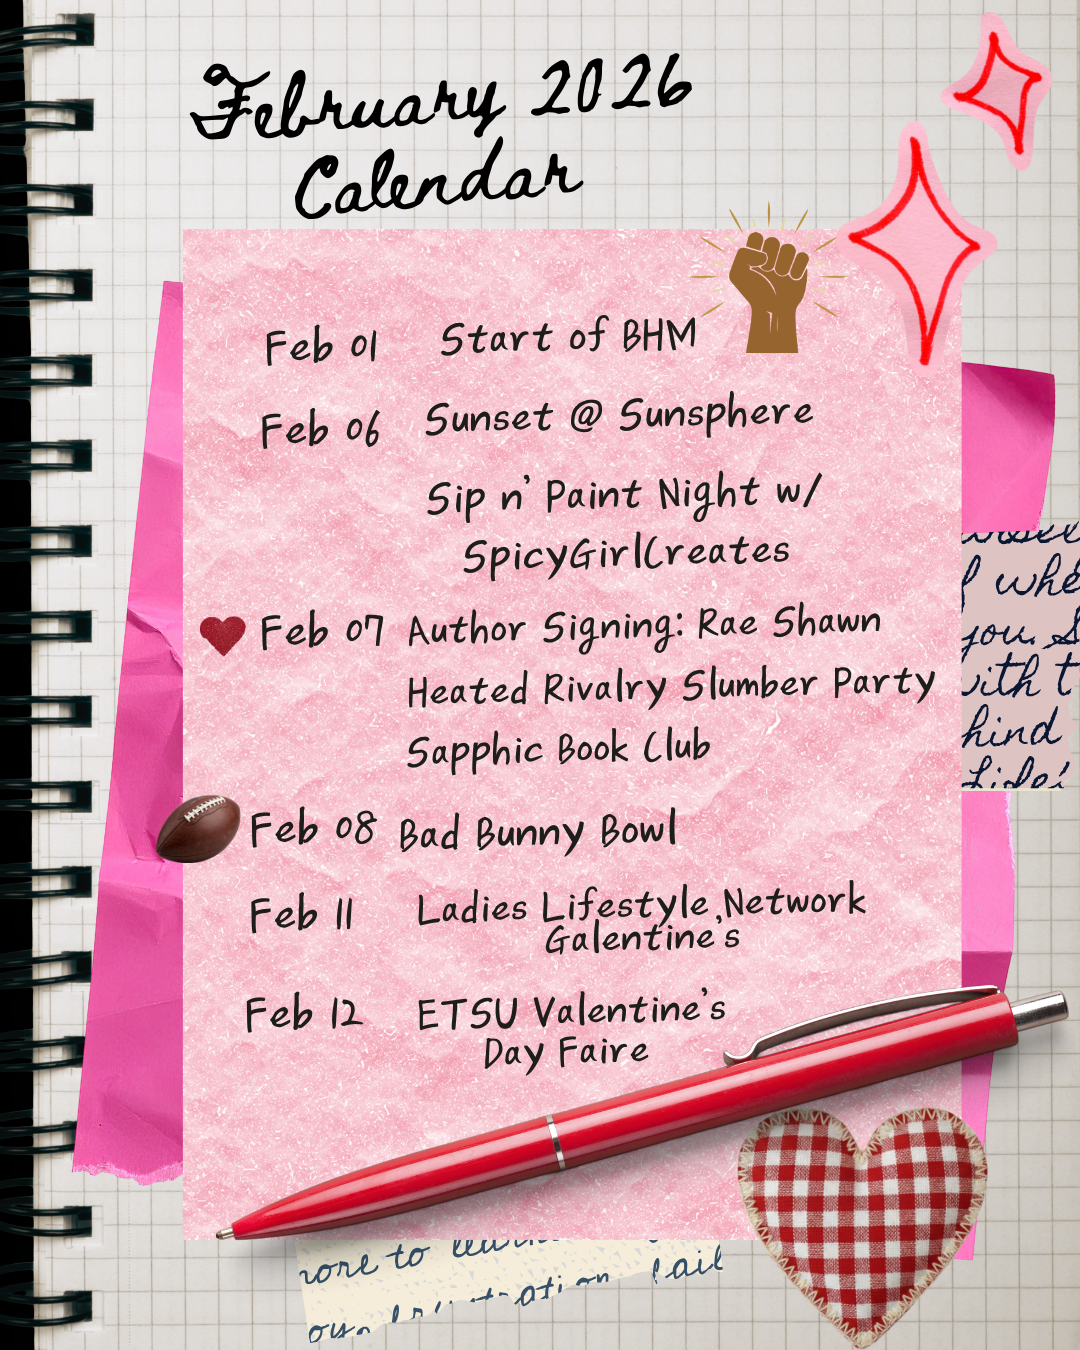 February 2026
Calendar
Feb 01 Start of BHM
Feb 06 Sunset @ Sunsphere
Sip n' Paint Night w/
SpicyGirlCreates
Feb 07 Author Signing: Rae Shawn
Heated Rivalry Slumber Party
Sapphic Book Club
Feb 08 Bad Bunny Bowl
Feb 11 Ladies Lifestyle Network
Galentine's
Feb 12 ETSU Valentine's
Day Faire
whe
you. S
with t
hind
more to learn